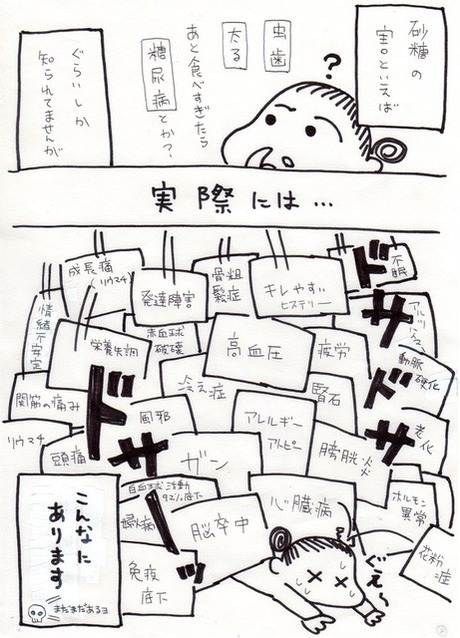 砂糖の
害。といえば
?
虫歯
太る
あと食べすぎたら
糖尿病とか?
ぐらいしか
知られてませんが
実際には…
成長痛
(リウマチ)
発達障害
骨粗
鬆症
キレやすい
ヒステリー
不眠
ドサドサ
情緒
不安定
栄養失調
赤血球
破壊
高血圧
疲労
動脈
硬化
関節の痛み
冷え症
腎石
リウマチ
頭痛
風邪
ガン
アレルギー
アトピー
膀胱炎
老化
ドサーッ
白血球活動
92%低下
婦人病
脳卒中
心臓病
ホルモン
異常
花粉
症
免疫
低下
ぐえ〜
こんなに
あります
まだまだあるヨ